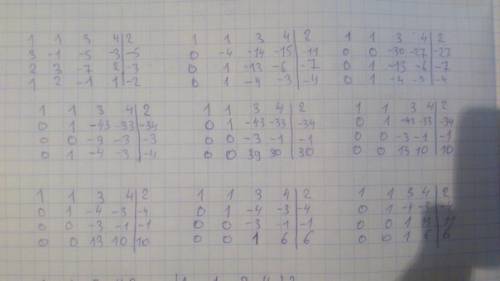 1 1 3 4 | 2
3 -1 -5 -3 | -5
2 3 -7 2 | -3
1 2 -1 1 | -2
1 1 3 4 | 2
0 -4 -14 -15 | -11
0 1 -13 -6 | -7
0 1 -4 -3 | -4
1 1 3 4 | 2
0 0 -30 -27 | -27
0 1 -13 -6 | -7
0 1 -4 -3 | -4
1 1 3 4 | 2
0 1 -43 -33 | -34
0 0 -9 -3 | -3
0 1 -4 -3 | -4
1 1 3 4 | 2
0 1 -43 -33 | -34
0 0 -3 -1 | -1
0 0 39 30 | 30
1 1 3 4 | 2
0 1 -43 -33 | -34
0 0 -3 -1 | -1
0 0 13 10 | 10
1 1 3 4 | 2
0 1 -4 -3 | -4
0 0 -3 -1 | -1
0 0 13 10 | 10
1 1 3 4 | 2
0 1 -4 -3 | -4
0 0 -3 -1 | -1
0 0 1 6 | 6
1 1 3 4 | 2
0 1
0 0 1
0 0 1 6 | 6